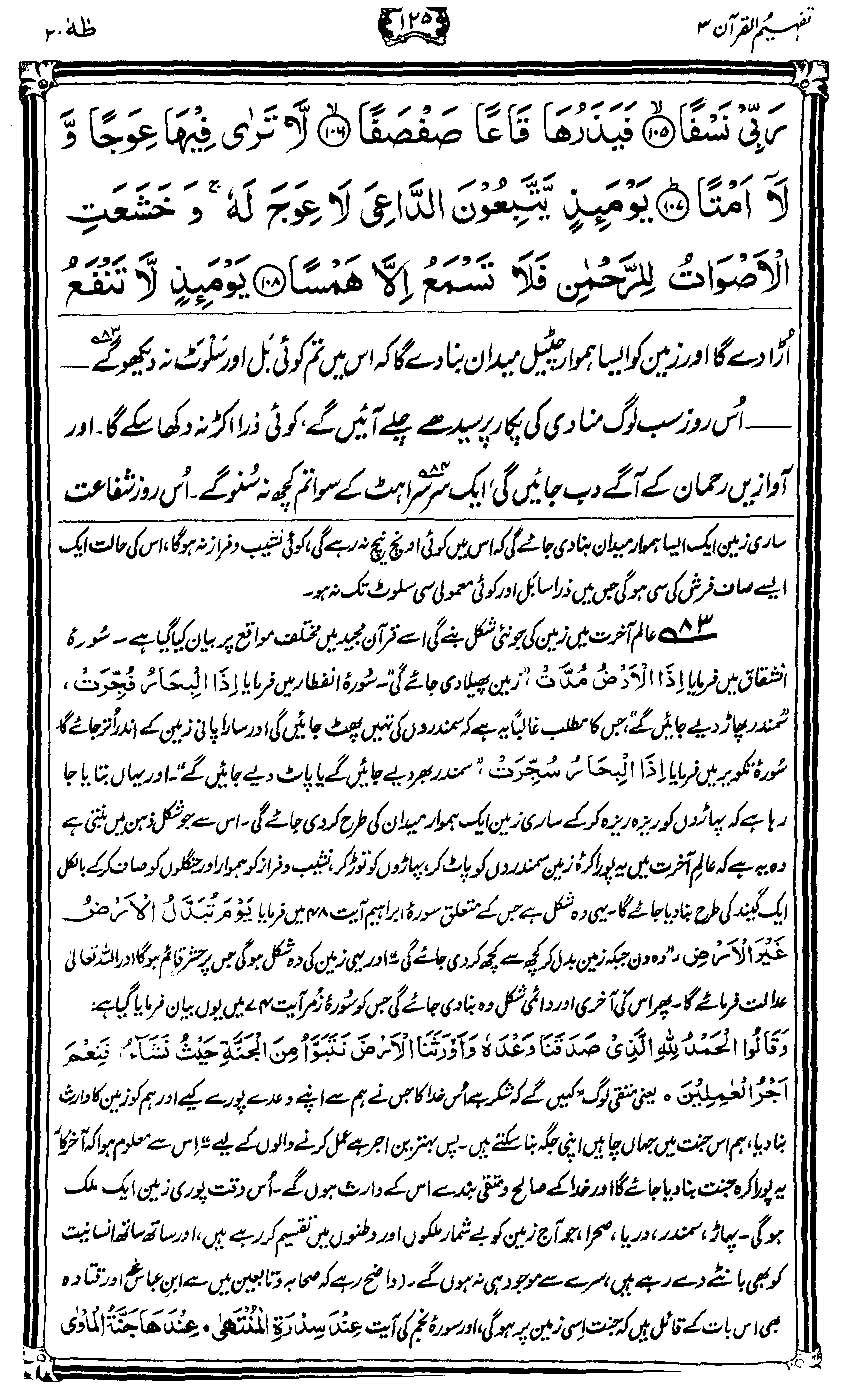 تفہیم القرآن ۳
۱۲۵
طٰهٰ ۲۰
رَبِّيْ نَسْفًا ۝۱۰۵ فَيَذَرُهَا قَاعًا صَفْصَفًا ۝۱۰۶ لَّا تَرٰى فِيْهَا عِوَجًا وَّ
لَآ اَمْتًا ۝۱۰۷ يَوْمَئِذٍ يَّتَّبِعُوْنَ الدَّاعِيَ لَا عِوَجَ لَهٗ ۚ وَ خَشَعَتِ
الْاَصْوَاتُ لِلرَّحْمٰنِ فَلَا تَسْمَعُ اِلَّا هَمْسًا ۝۱۰۸ يَوْمَئِذٍ لَّا تَنْفَعُ
اُڑا دے گا اور زمین کو ایسا ہموار چٹیل میدان بنا دے گا کہ اس میں تم کوئی بَل اور سَلْوَٹ نہ دیکھو گے ۸۳ــــ
ــــ اُس روز سب لوگ منادی کی پکار پر سیدھے چلے آئیں گے، کوئی ذرا اکڑ نہ دکھا سکے گا۔ اور
آوازیں رحمان کے آگے دب جائیں گی، ایک سرسراہٹ ۸۴ کے سوا تم کچھ نہ سُنو گے۔ اُس روز شفاعت
ساری زمین ایک ایسا ہموار میدان بنا دی جائے گی کہ اس میں کوئی اونچ نیچ نہ رہے گی، کوئی نشیب و فراز نہ ہوگا، اس کی حالت ایک
ایسے صاف فرش کی سی ہوگی جس میں ذرا سا بل اور کوئی معمولی سی سلوٹ تک نہ ہو۔
۸۳ عالم آخرت میں زمین کی جو نئی شکل بنے گی اسے قرآن مجید میں مختلف مواقع پر بیان کیا گیا ہے۔ سُورۂ
انشقاق میں فرمایا اِذَا الْاَرْضُ مُدَّتْ ”زمین پھیلا دی جائے گی“۔ سُورۂ انفطار میں فرمایا اِذَا الْبِحَارُ فُجِّرَتْ،
”سمندر پھاڑ دیے جائیں گے“، جس کا مطلب غالباً یہ ہے کہ سمندروں کی تہیں پھٹ جائیں گی اور سارا پانی زمین کے اندر اُتر جائے گا۔
سُورۂ تکویر میں فرمایا اِذَا الْبِحَارُ سُجِّرَتْ، ”سمندر بھر دیے جائیں گے یا پاٹ دیے جائیں گے“۔ اور یہاں بتایا جا
رہا ہے کہ پہاڑوں کو ریزہ ریزہ کر کے ساری زمین ایک ہموار میدان کی طرح کر دی جائے گی۔ اس سے جو شکل ذہن میں بنتی ہے
وہ یہ ہے کہ عالم آخرت میں یہ پورا کرۂ زمین سمندروں کو پاٹ کر، پہاڑوں کو توڑ کر، نشیب و فراز کو ہموار اور جنگلوں کو صاف کر کے بالکل
ایک گیند کی طرح بنا دیا جائے گا۔ یہی وہ شکل ہے جس کے متعلق سورۂ ابراہیم آیت ۴۸ میں فرمایا یَوْمَ تُبَدَّلُ الْاَرْضُ
غَيْرَ الْاَرْضِ، ”وہ دن جبکہ زمین بدل کر کچھ سے کچھ کر دی جائے گی“ اور یہی زمین کی وہ شکل ہوگی جس پر حشر قائم ہوگا اور اللہ تعالیٰ
عدالت فرمائے گا۔ پھر اس کی آخری اور دائمی شکل وہ بنا دی جائے گی جس کو سُورۂ زُمر آیت ۷۴ میں یوں بیان فرمایا گیا ہے:
وَقَالُوا الْحَمْدُ لِلّٰهِ الَّذِيْ صَدَقَنَا وَعْدَهٗ وَاَوْرَثَنَا الْاَرْضَ نَتَبَوَّاُ مِنَ الْجَنَّةِ حَيْثُ نَشَآءُ فَنِعْمَ
اَجْرُ الْعٰمِلِيْنَ ۝ یعنی متقی لوگ ”کہیں گے کہ شکر ہے اُس خدا کا جس نے ہم سے اپنے وعدے پورے کیے اور ہم کو زمین کا وارث
بنا دیا، ہم اس جنت میں جہاں چاہیں اپنی جگہ بنا سکتے ہیں۔ پس بہترین اجر ہے عمل کرنے والوں کے لیے“۔ اِس سے معلوم ہوا کہ آخرکار
یہ پورا کرہ جنت بنا دیا جائے گا اور خدا کے صالح و متقی بندے اس کے وارث ہوں گے۔ اُس وقت پوری زمین ایک ملک
ہوگی۔ پہاڑ، سمندر، دریا، صحرا، جو آج زمین کو بے شمار ملکوں اور وطنوں میں تقسیم کر رہے ہیں، اور ساتھ ساتھ انسانیت
کو بھی بانٹے دے رہے ہیں، سرے سے موجود ہی نہ ہوں گے۔ (واضح رہے کہ صحابہ و تابعین میں سے ابن عباسؓ اور قتادہ
بھی اس بات کے قائل ہیں کہ جنت اِسی زمین پر ہوگی، اور سورۂ نجم کی آیت عِنْدَ سِدْرَةِ الْمُنْتَهٰى، عِنْدَهَا جَنَّةُ الْمَاْوٰى